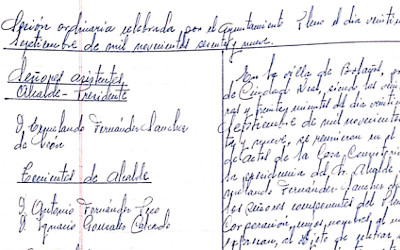 Sesión ordinaria celebrada, por el Ayuntamiento Pleno el día veinti
septiembre de mil novecientos setenta y nueve.
Señores asistentes
Alcalde-Presidente
D. Esquelando Fernández-Sanchez
de León
Tenientes de Alcalde
D. Antonio Fernández
D. Ignacio Gonzalez
En la villa de Bolaños,
de Ciudad Real, siendo las
ras y treinta minutos del día veinti
septiembre de mil novecientos
ta y nueve, se reunieron en el
de actos de la Casa Consistoria
la presidencia del Sr. Alcalde
Fernández-Sanchez de
los señores componentes del Plen
Corporación, cuyos nombres, al m
expresan, al objeto de celebrar